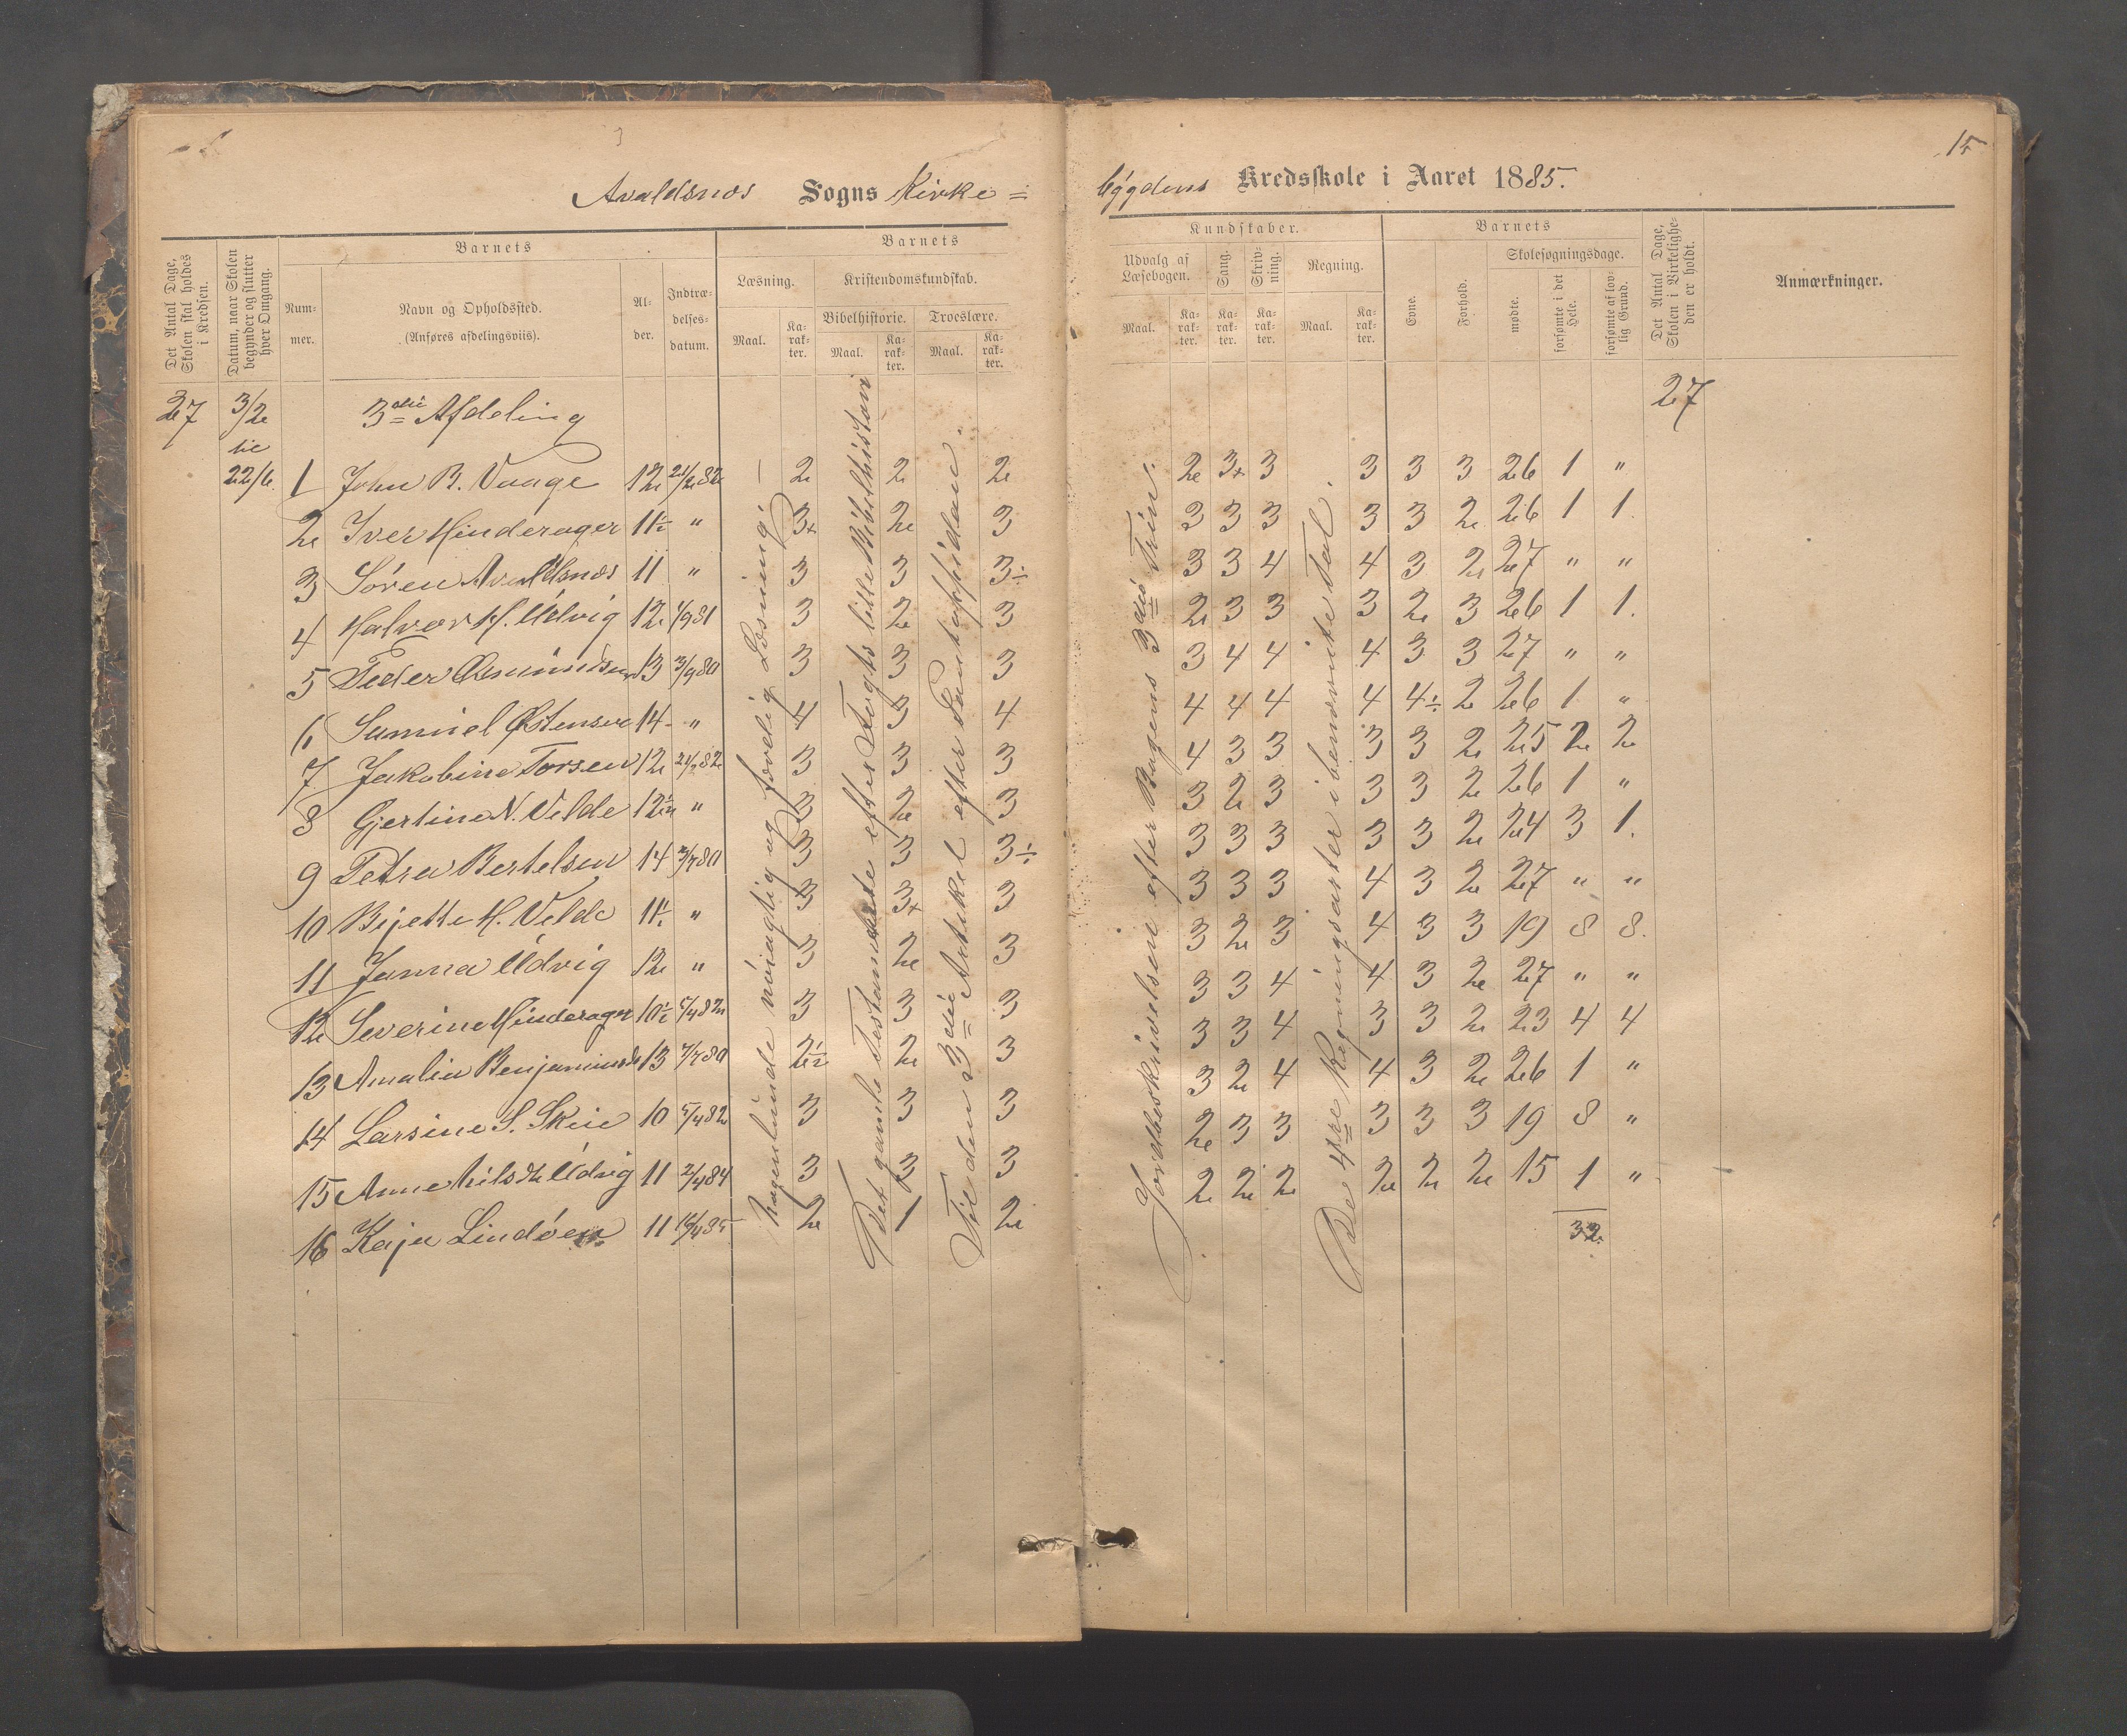 15
Avaldsnæs Sogns Kirke=
bygdens Kredsskole i Aaret 1885.
Det Antal Dage, Skolen skal holdes i Kredsen.
Datum, naar Skolen begynder og slutter hver Omgang.
Barnets
Nummer.
Navn og Opholdssted.
(Anføres afdelingsviis).
Alder.
Indtrædelsesdatum.
Barnets
Læsning.
Maal.
Karakter.
Kristendomskundskab.
Bibelhistorie.
Maal.
Karakter.
Troeslære.
Maal.
Karakter.
Kundskaber.
Udvalg af Læsebogen.
Maal.
Karakter.
Sang.
Karakter.
Skrivning.
Karakter.
Regning.
Maal.
Karakter.
Barnets
Evne.
Forhold.
Skolesøgningsdage.
mødte.
forsømte i det Hele.
forsømte af lovlig Grund.
Det Antal Dage, Skolen i Virkeligheden er holdt.
Anmærkninger.
27 3/2 3die Afdeling 27
til
22/6 1 John B. Vaage 12 2 2 2 2 3+ 3 3 3 3 26 1 "
2 Iver Hinderager 11½ " 3+ 2 3 3 3 3 3 3 2 26 1 1.
3 Sören Avaldsnæs 11 " 3 3 3÷ 3 3 4 4 3 2 27 " "
4 Halvor H. Udvig 12 1/9 81 3 2 3 2 3 3 3 2 3 26 1 1.
5 Peder Asmundsen 13 3/9 80 3 3 3 3 4 4 4 3 3 27 " "
6 Samuel Østensen 14 " 4 3 4 4 4 4 4 4÷ 2 26 1 "
7 Jakobine Torsen 12 3 3 3 4 3 3 3 3 2 25 2 2
8 Gjertine N. Velde 12½ " 3 2 3 3 2 3 3 3 2 26 1 "
9 Petra Bertelsen 14 3/7 80 3 3 3÷ 3 3 3 3 3 2 24 3 1.
10 Bijette H. Velde 11½ " 3 3+ 3 3 3 3 4 3 2 27 " "
11 Janna Udvig 12 " 3 2 3 3 2 3 4 3 3 19 8 8.
12 Severine Hinderager 10½ 5/4 82 3 3 3 3 3 4 4 3 2 27 " "
13 Amalia Benjaminsdt 13 7/7 80 2½ 2 3 3 3 4 3 3 2 23 4 4
14 Larsine S. Skeie 10 5/4 82 3 3 3 3 2 4 4 3 2 26 1 "
15 Anne Nilsdt Udvig 11 2/4 84 3 3 3 2 3 3 3 3 3 19 8 "
16 Kaja Lindöen 11 2 1 2 2 2 2 2 2 2 15 1 "
32.
Nogenlunde nöiagtig og færdig Læsning.
Det gamle Testamente efter Vogts lille Bibelhistorie
Til den 3die Artikel efter Pontoppidan.
Jordbeskrivelsen efter Bogens 3die Trin.
De 4re Regningsarter i benævnte Tal.